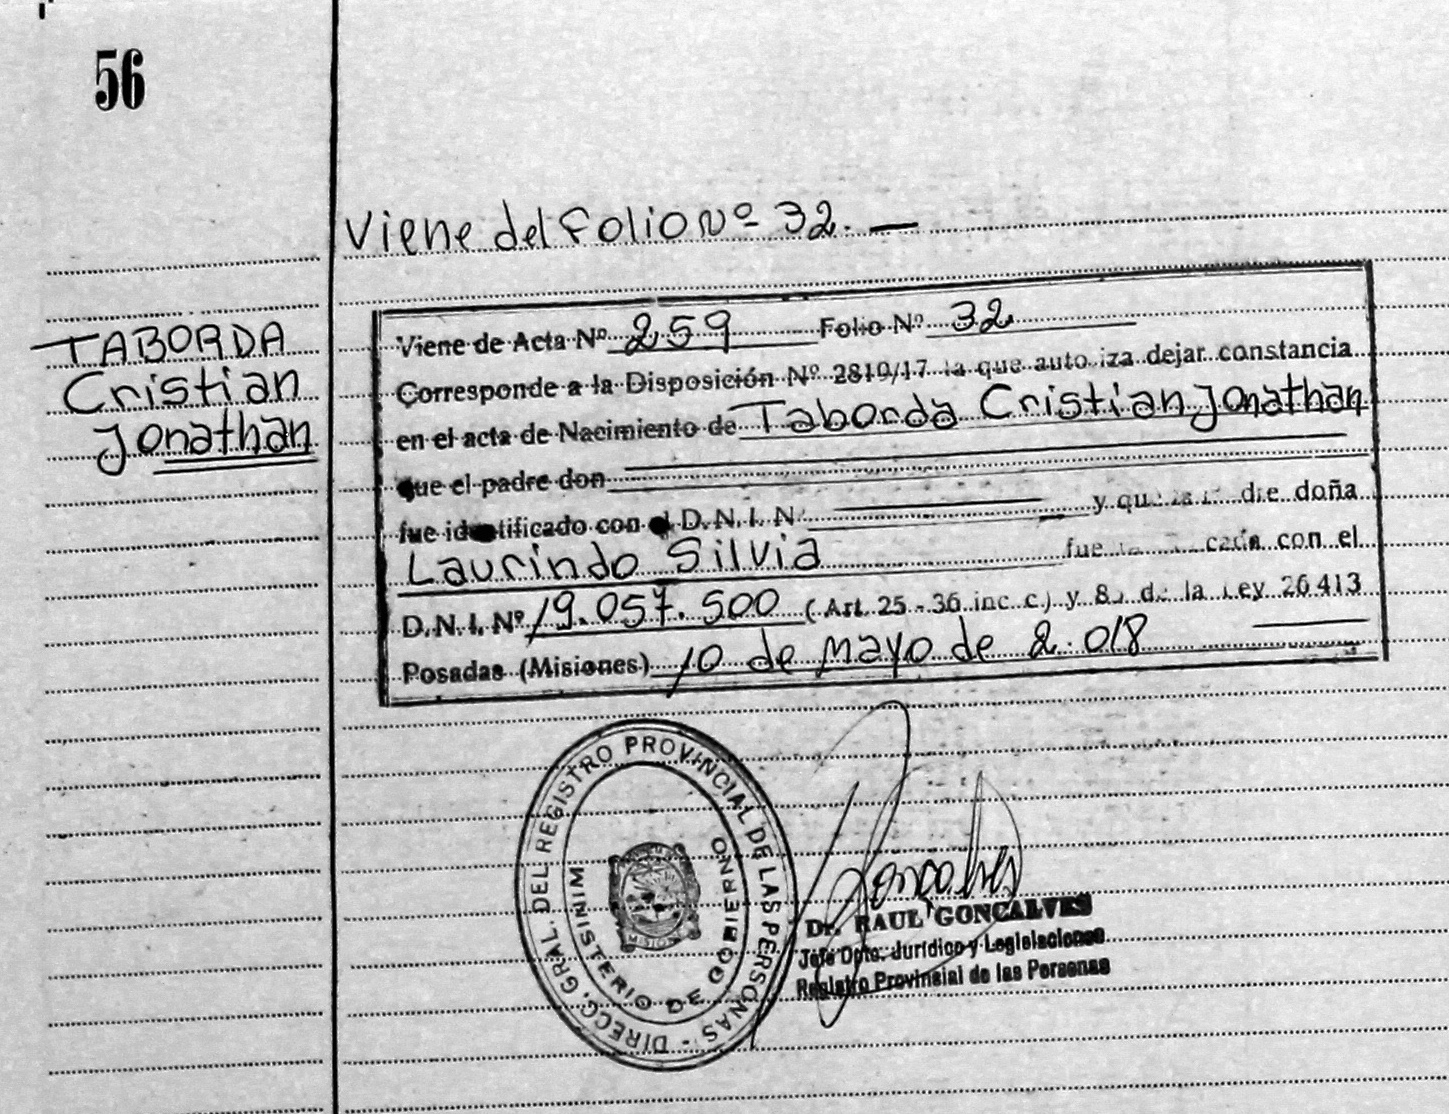 56
Viene del Folio Nº 32. —
TABORDA
Cristian
Jonathan
Viene de Acta Nº 259 Folio Nº 32
Corresponde a la Disposición Nº 2810/17 la que autoriza dejar constancia
en el acta de Nacimiento de Taborda Cristian Jonathan
que el padre don
fue identificado con el D.N.I. Nº y que la madre doña
Laurindo Silvia fue con el
D.N.I. Nº 19.057.500 (Art. 25 - 36 inc. c) y 8 de la Ley 26413
Posadas (Misiones) 10 de mayo de 2.018
DIRECC. GRAL. DEL REGISTRO PROVINCIAL DE LAS PERSONAS -
MINISTERIO DE GOBIERNO
MISIONES
Goncalves
Dr. RAUL GONCALVES
Jefe Dpto. Jurídico y Legislaciones
Registro Provincial de las Personas